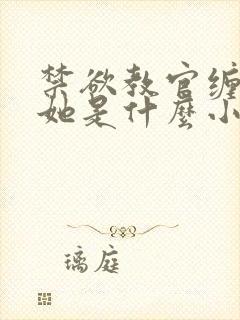 禁欲教官缠
她是什麼小
璃庭